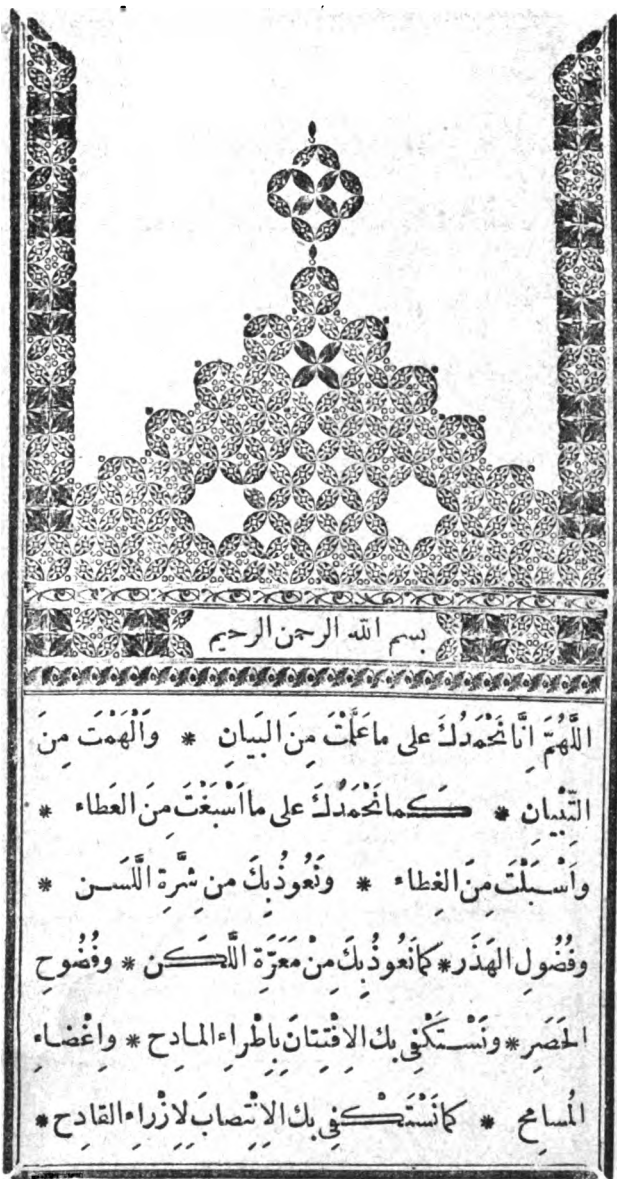 بسم الله الرحمن الرحيم
اللَّهُمَّ اِنَّا نَحْمَدُكَ على ما عَلَّمْتَ مِنَ البَيانِ * وَاَلْهَمْتَ مِنَ
التِّبْيانِ * كـما نَحْمَدُكَ على ما اَسْبَغْتَ مِنَ العَطاء *
واَسْـبَلْتَ مِنَ الغِطاء * ونَعُوذُ بِكَ من شِرَّةِ اللَّسَـن *
وفُضُولِ الهَذَر * كما نَعُوذُ بِكَ مِنْ مَعَرَّةِ اللَّكَـن * وفُضُوحِ
الحَصَرِ * ونَسْـتَكْفِى بك الاِفْتِتانَ بِاِطْراءِ المـادِح * واِغْضـاءِ
المُسامِحِ * كما نَسْتَـكْـفِى بك الاِنْتِصابَ لِاِزْراءِ القادِح *